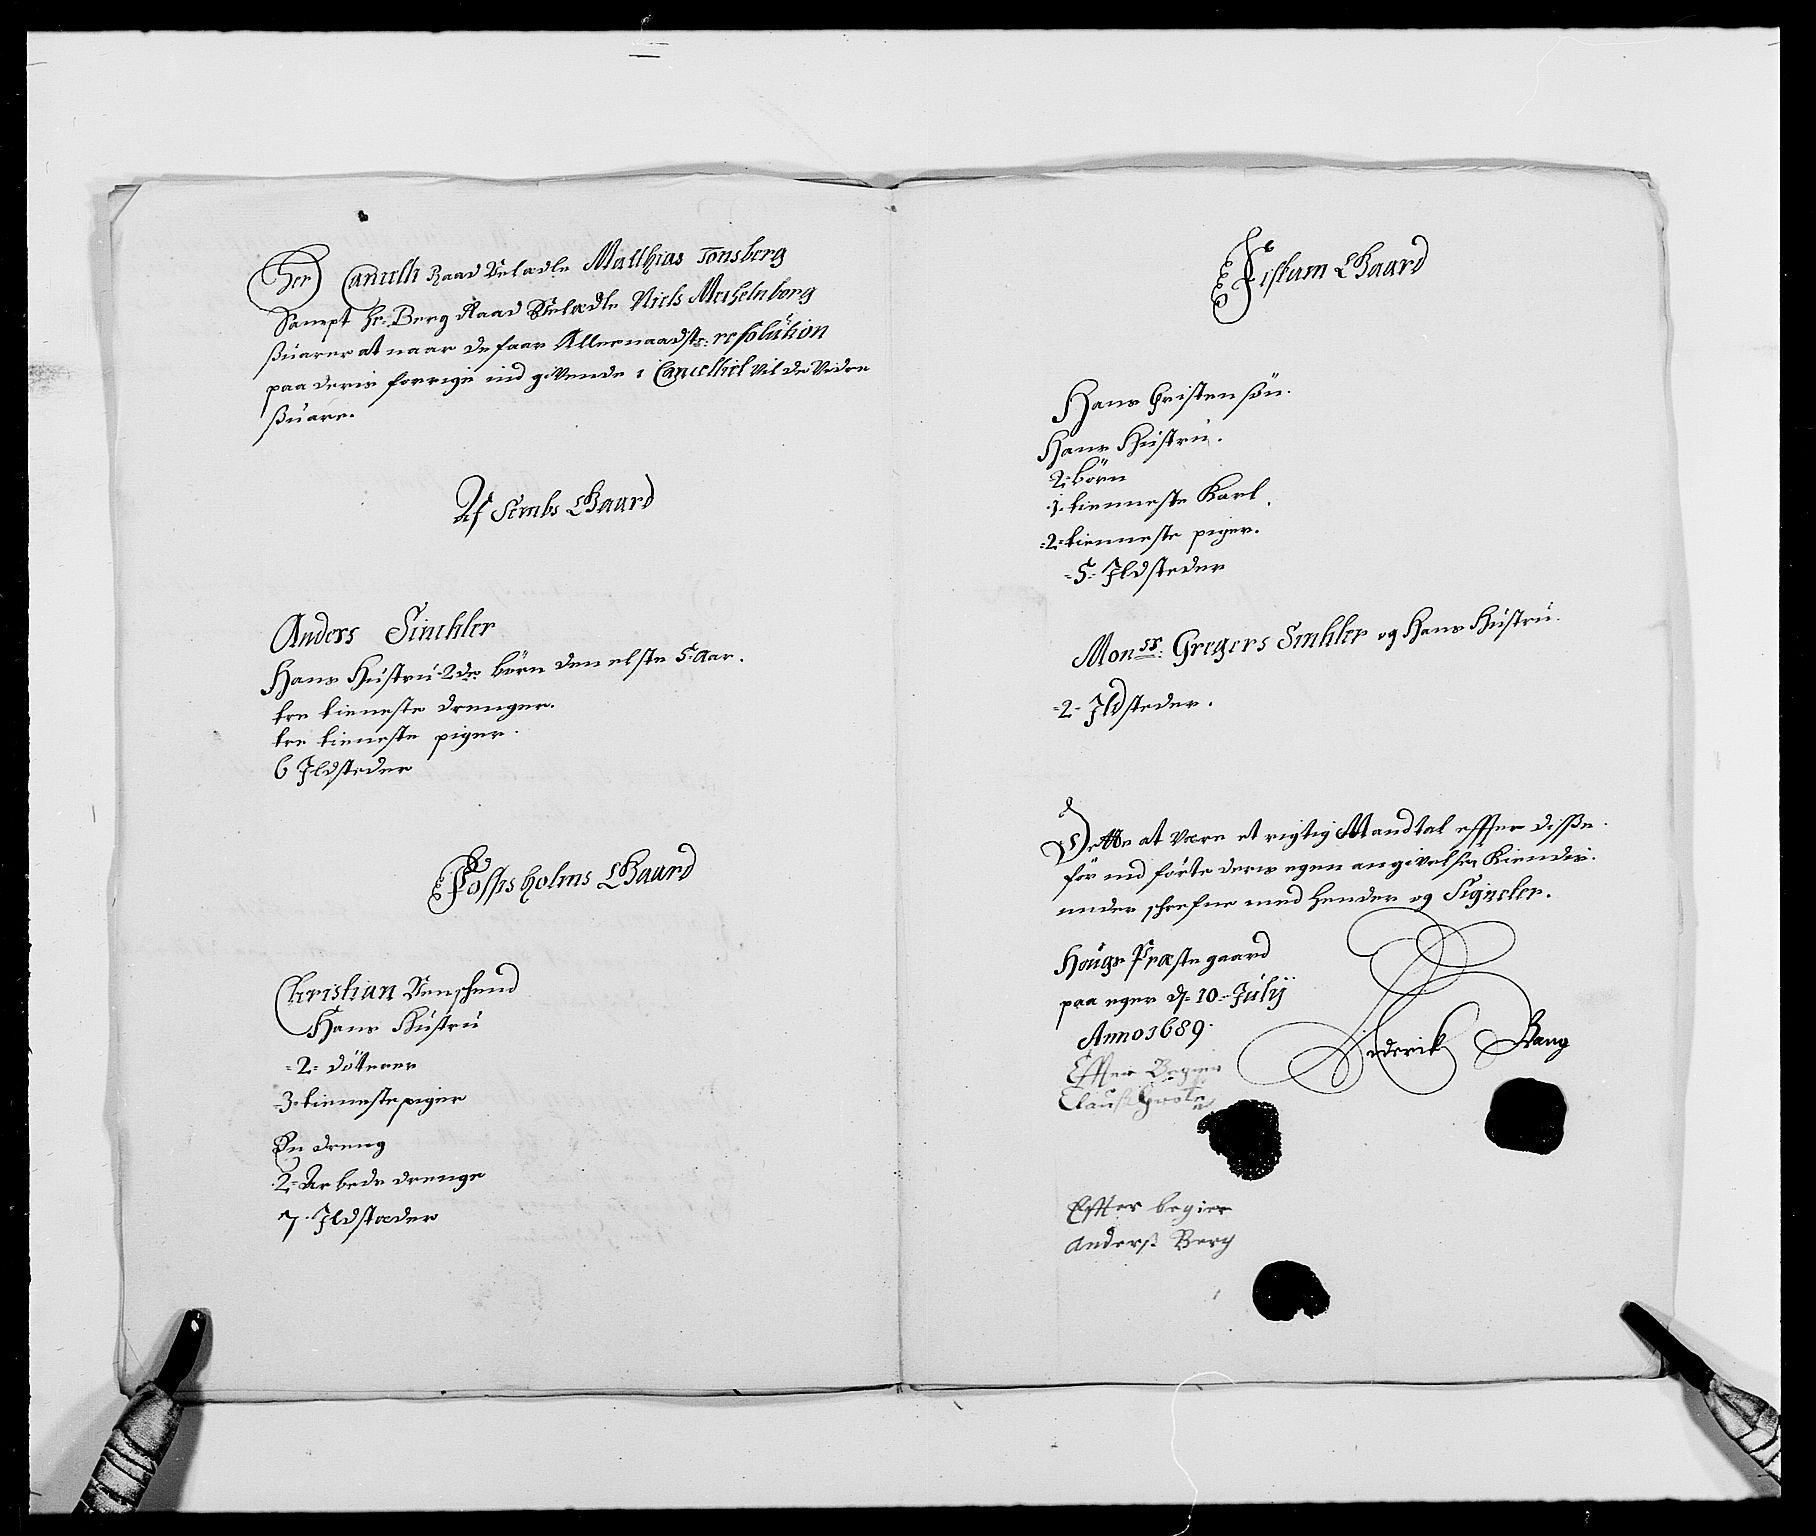 Her Cancellj Raad Velædle Matthias Tonsberg
Sampt hr: Berg Raad Velædle Niels Mechelnborg
suarer at naar de faar Allernaadste: resolution
paa deris forrige ind givende i Cancelliet vil de vidre
suare.
Af Sembs Gaard
Anders Sinchler
Hans Hustru 2de børn den elste 5 Aar.
tre tieneste drenger.
tre tieneste piger.
6 Ildsteder
Fossisholms Gaard
Christian
Hans Hustru
-2- døtterer
-3- tienneste piger
En dreng
2- Arbeds drenge
7. Ildstæder
Fiskum Gaard
Hans Cristensøn.
Hans Hustru.
2: børn
1. tienneste Karl.
-2- tienneste piger.
-5- Ildsteder
Monsr: Gregers Sinchler og Hans Hustru.
-2- Ildsteder.
Dette at være et rigtig Mandtal effter disse
før ind førte deris egen angivelser Kiendis.
under schrefne med hender og Signeter.
Hougs Præste gaard
paa eger d: 10 Julij
Anno 1689.
Effter Begier
Clauss
Frederik Bang
Effter begier
Anderss Berg